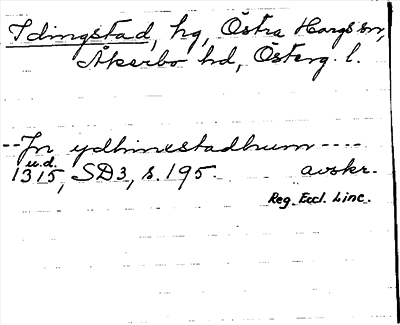 Idingstad, hg, Östra Hargs sn,
Åkerbo hd, Österg. l.
-- Jn ydhinestadhum ----
u.d.
1315, SD3, s. 195. avskr.
Reg. Eccl. Linc.